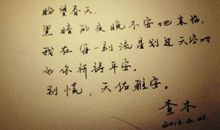 盼望春天。
黑暗的夜晚不安地来临，
我在每一刻流星划过天空时
为你祈祷平安。
别慌，天佑雅安。
查木